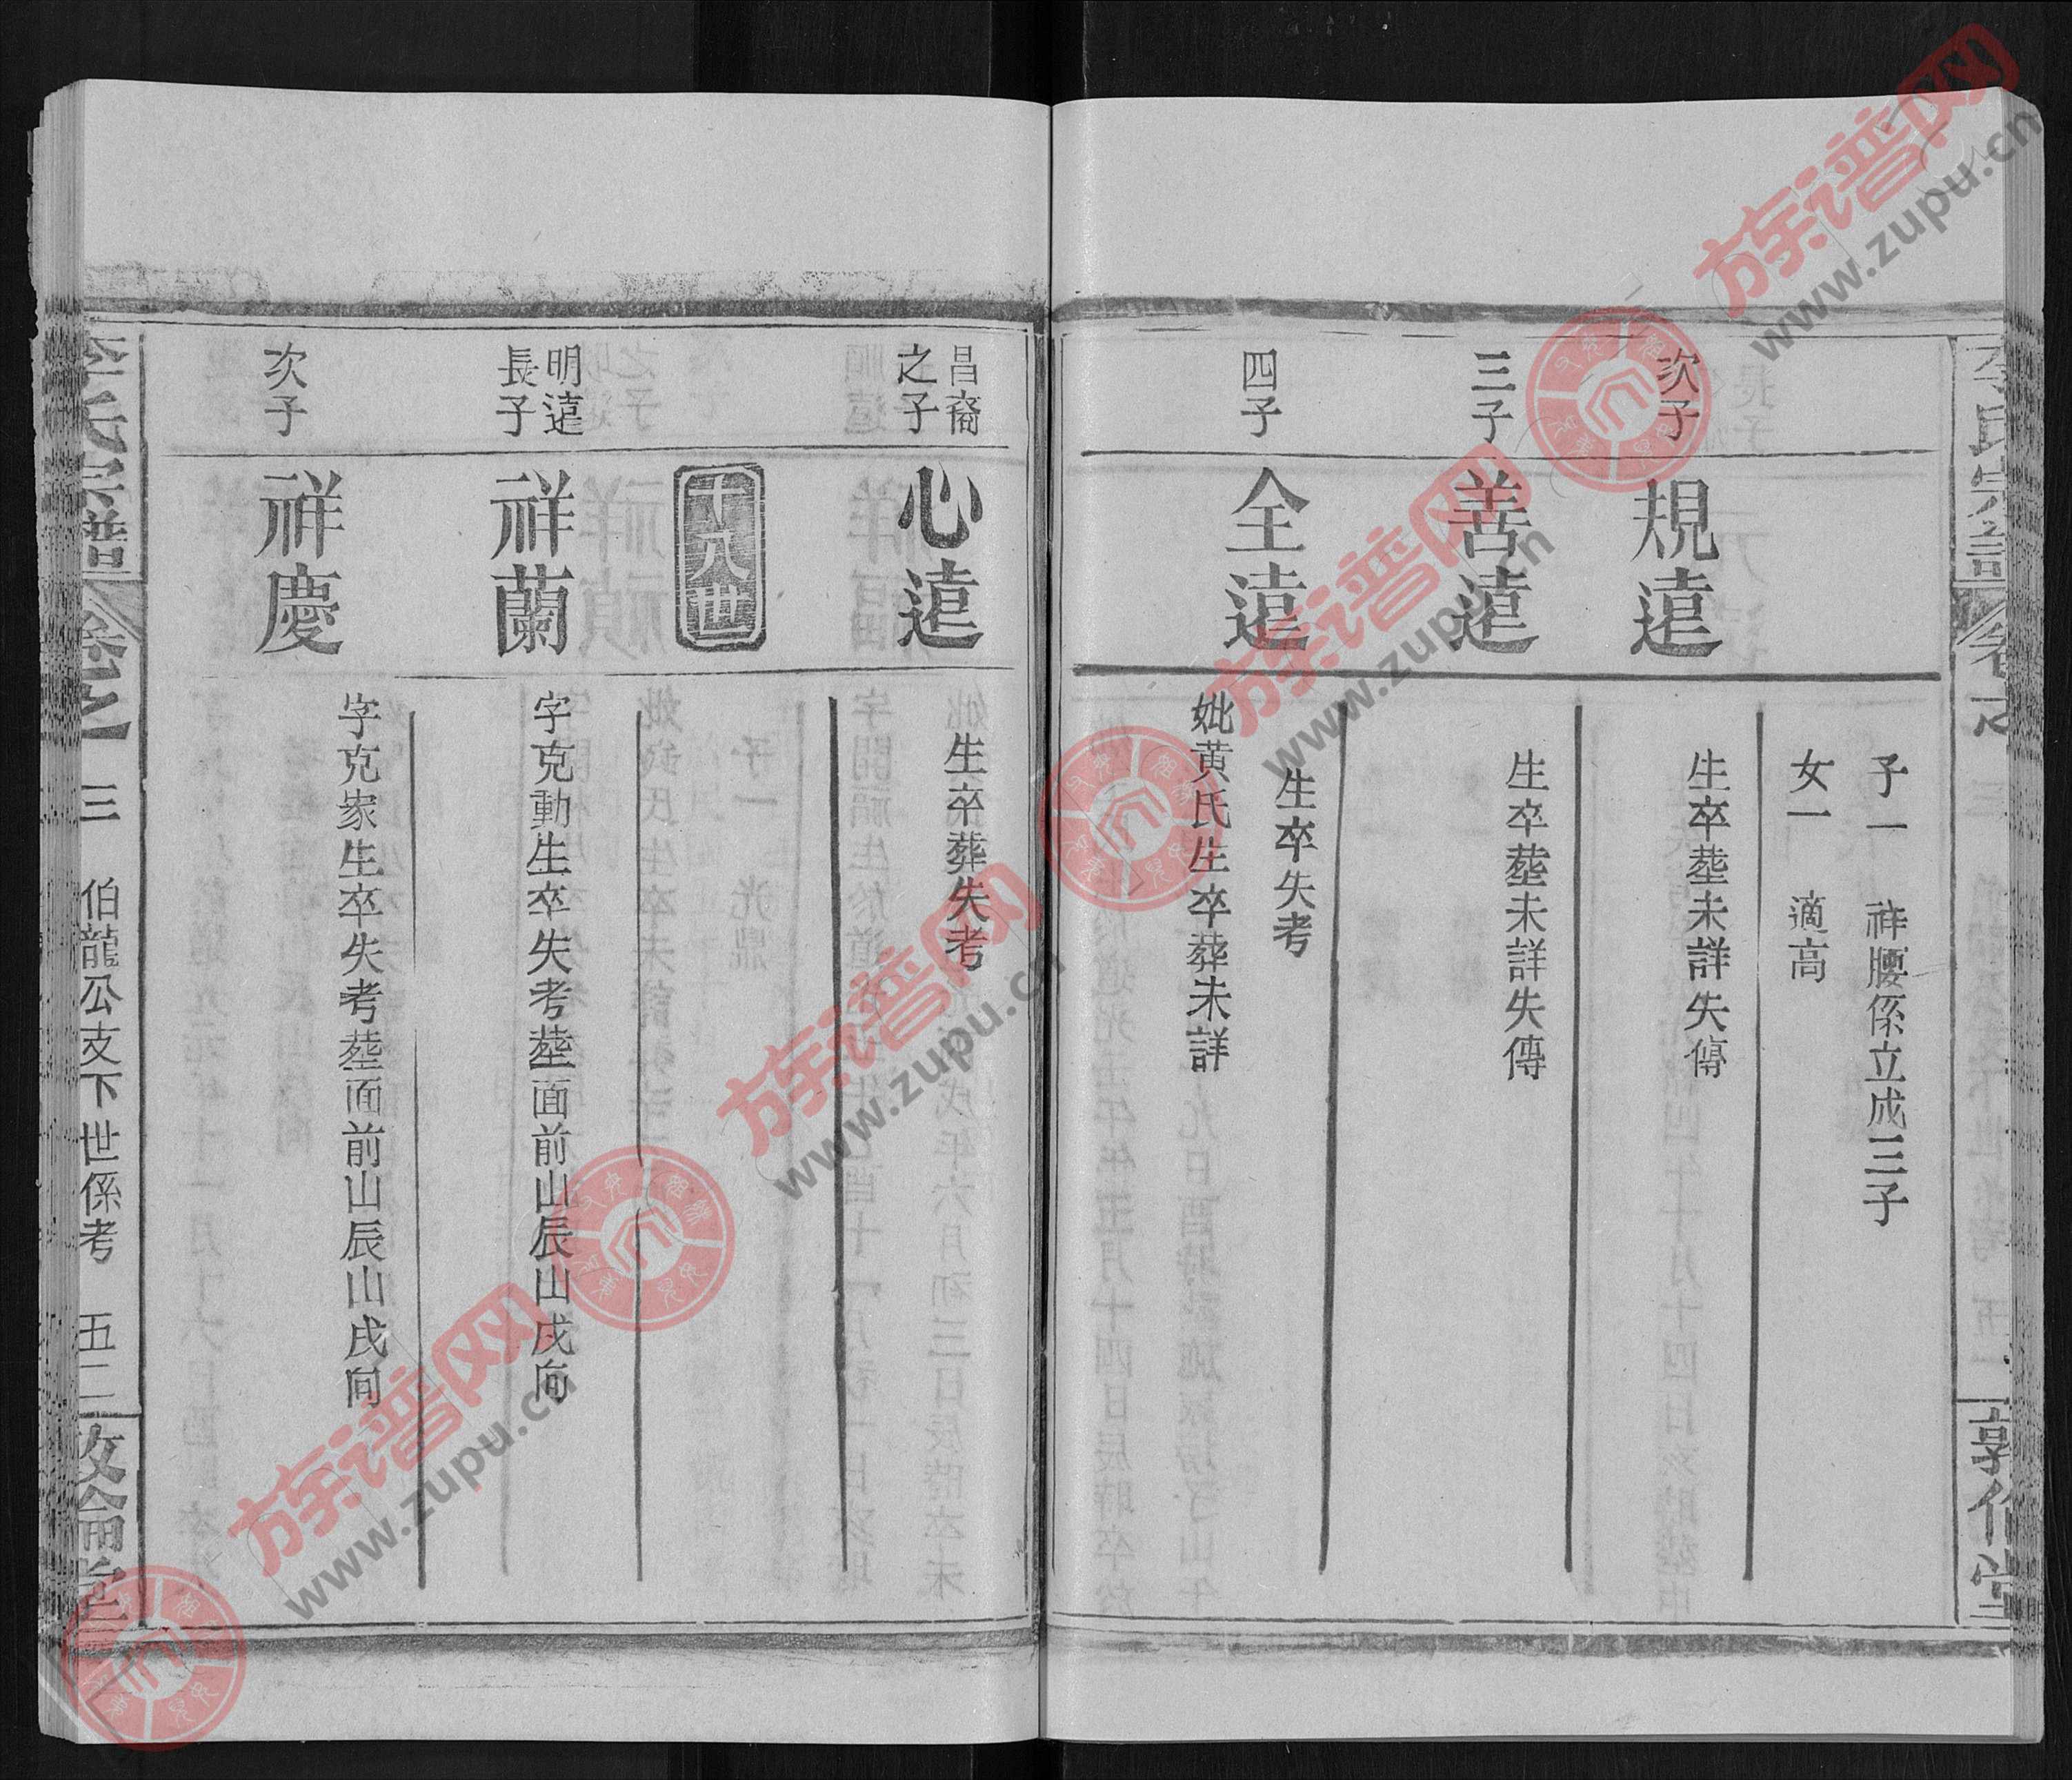 李氏宗譜
子一 祥腰係立成三子
女一 適高
次子
規遠
生卒塟未詳失傳
三子
善遠
生卒塟未詳失傳
四子
全遠
生卒失考
妣黄氏生卒葬未詳
昌裔
之子
心遠
生卒葬失考
十八世
明遠
長子
祥蘭
字克動生卒失考塟面前山辰山戌向
次子
祥慶
字克家生卒失考塟面前山辰山戌向
李氏宗譜 卷之 三 伯龍公支下世係考 五二
族谱网
www.zupu.cn
族谱网
www.zupu.cn
族谱网
www.zupu.cn
族谱网
www.zupu.cn